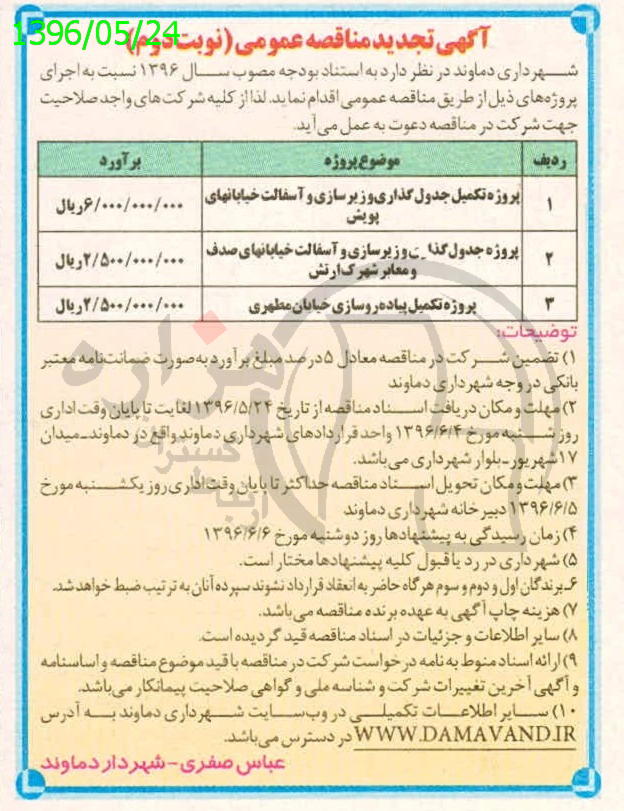 1396/05/24
آگهی تجدید مناقصه عمومی (نوبت دوم)
شهرداری دماوند در نظر دارد به استناد بودجه مصوب سال ۱۳۹۶ نسبت به اجرای
پروژه‌های ذیل از طریق مناقصه عمومی اقدام نماید. لذا از کلیه شرکت‌های واجد صلاحیت
جهت شرکت در مناقصه دعوت به عمل می‌آید.
ردیف موضوع پروژه برآورد
۱ پروژه تکمیل جدول گذاری و زیرسازی و آسفالت خیابانهای پویش ۶/۰۰۰/۰۰۰/۰۰۰ ریال
۲ پروژه جدول گذاری و زیرسازی و آسفالت خیابانهای صدف و معابر شهرک ارتش ۲/۵۰۰/۰۰۰/۰۰۰ ریال
۳ پروژه تکمیل پیاده‌روسازی خیابان مطهری ۲/۵۰۰/۰۰۰/۰۰۰ ریال
توضیحات:
۱) تضمین شرکت در مناقصه معادل ۵ درصد مبلغ برآورد به‌صورت ضمانت‌نامه معتبر
بانکی در وجه شهرداری دماوند
۲) مهلت و مکان دریافت اسناد مناقصه از تاریخ ۱۳۹۶/۵/۲۴ لغایت تا پایان وقت اداری
روز شنبه مورخ ۱۳۹۶/۶/۴ واحد قراردادهای شهرداری دماوند واقع در دماوند ـ میدان
۱۷ شهریور ـ بلوار شهرداری می‌باشد.
۳) مهلت و مکان تحویل اسناد مناقصه حداکثر تا پایان وقت اداری روز یکشنبه مورخ
۱۳۹۶/۶/۵ دبیرخانه شهرداری دماوند
۴) زمان رسیدگی به پیشنهادها روز دوشنبه مورخ ۱۳۹۶/۶/۶
۵) شهرداری در رد یا قبول کلیه پیشنهادها مختار است.
۶ـ برندگان اول و دوم و سوم هرگاه حاضر به انعقاد قرارداد نشوند سپرده آنان به ترتیب ضبط خواهد شد.
۷) هزینه چاپ آگهی به عهده برنده مناقصه می‌باشد.
۸) سایر اطلاعات و جزئیات در اسناد مناقصه قید گردیده است.
۹) ارائه اسناد منوط به نامه درخواست شرکت در مناقصه با قید موضوع مناقصه و اساسنامه
و آگهی آخرین تغییرات شرکت و شناسه ملی و گواهی صلاحیت پیمانکار می‌باشد.
۱۰) سایر اطلاعات تکمیلی در وب‌سایت شهرداری دماوند به آدرس
WWW.DAMAVAND.IR در دسترس می‌باشد.
عباس صفری - شهردار دماوند